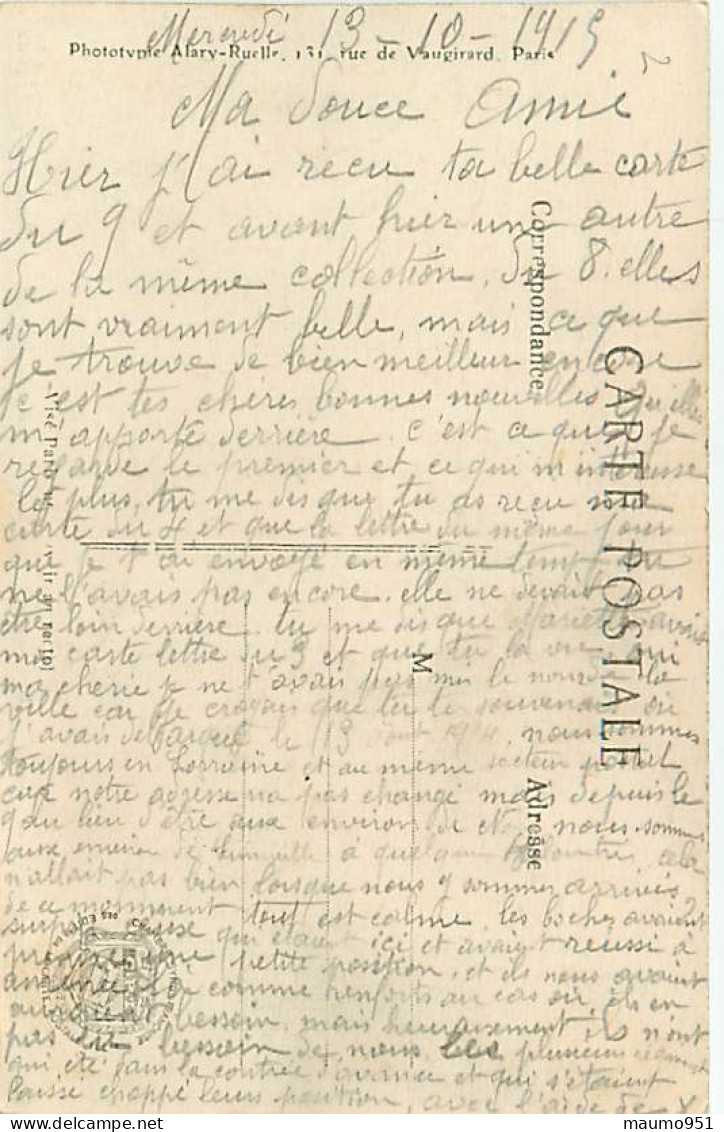 Mercredi 13-10-1915
Phototypie Alary-Ruelle, 131 rue de Vaugirard. Paris
Ma Douce Amie
Hier j'ai recu ta belle carte
du 9 et avant hier une autre
de la même collection, du 8. elles
sont vraiment belle, mais ce que
je trouve de bien meilleur encore
c'est tes chères bonnes nouvelles qu'elles
m'apporte derrière. c'est ce que je
regarde le premier et ce qui m'intéresse
le plus, tu me dis que tu as recu ma
carte du 4 et que la lettre du même jour
que je t'ai envoyé en même temp tu
ne l'avais pas encore. elle ne devait pas
être loin derrière. tu me dis que Mariette avait
ma carte lettre du 3 et que tu la
ma cherie je ne t'avais pas mis le nom de la
ville car je croyais que tu te souvenais où
j'avais le 13 1914. nous sommes
toujours en Lorraine et au même secteur postal
notre adresse na pas changé mais depuis le
9 au lieu d'être aux environ de nous sommes
aux environ de à quelques cela
n'allait pas bien lorsque nous y sommes arrivés
de ce mommment tout est calme. les boches avaient
surpris qui étaient ici et avait réussi à
prendre une petite position, et ils nous avait
amenés ici comme renforts au cas où ils en
auraient besoin. mais heureusement ils n'ont
pas eu besoin de nous. les plusieurs
qui été dans la contrée d'avance et qui s'étaient
laissé chappé leurs position, avec l'aide de
Correspondance
CARTE POSTALE
M
Adresse
maumo951